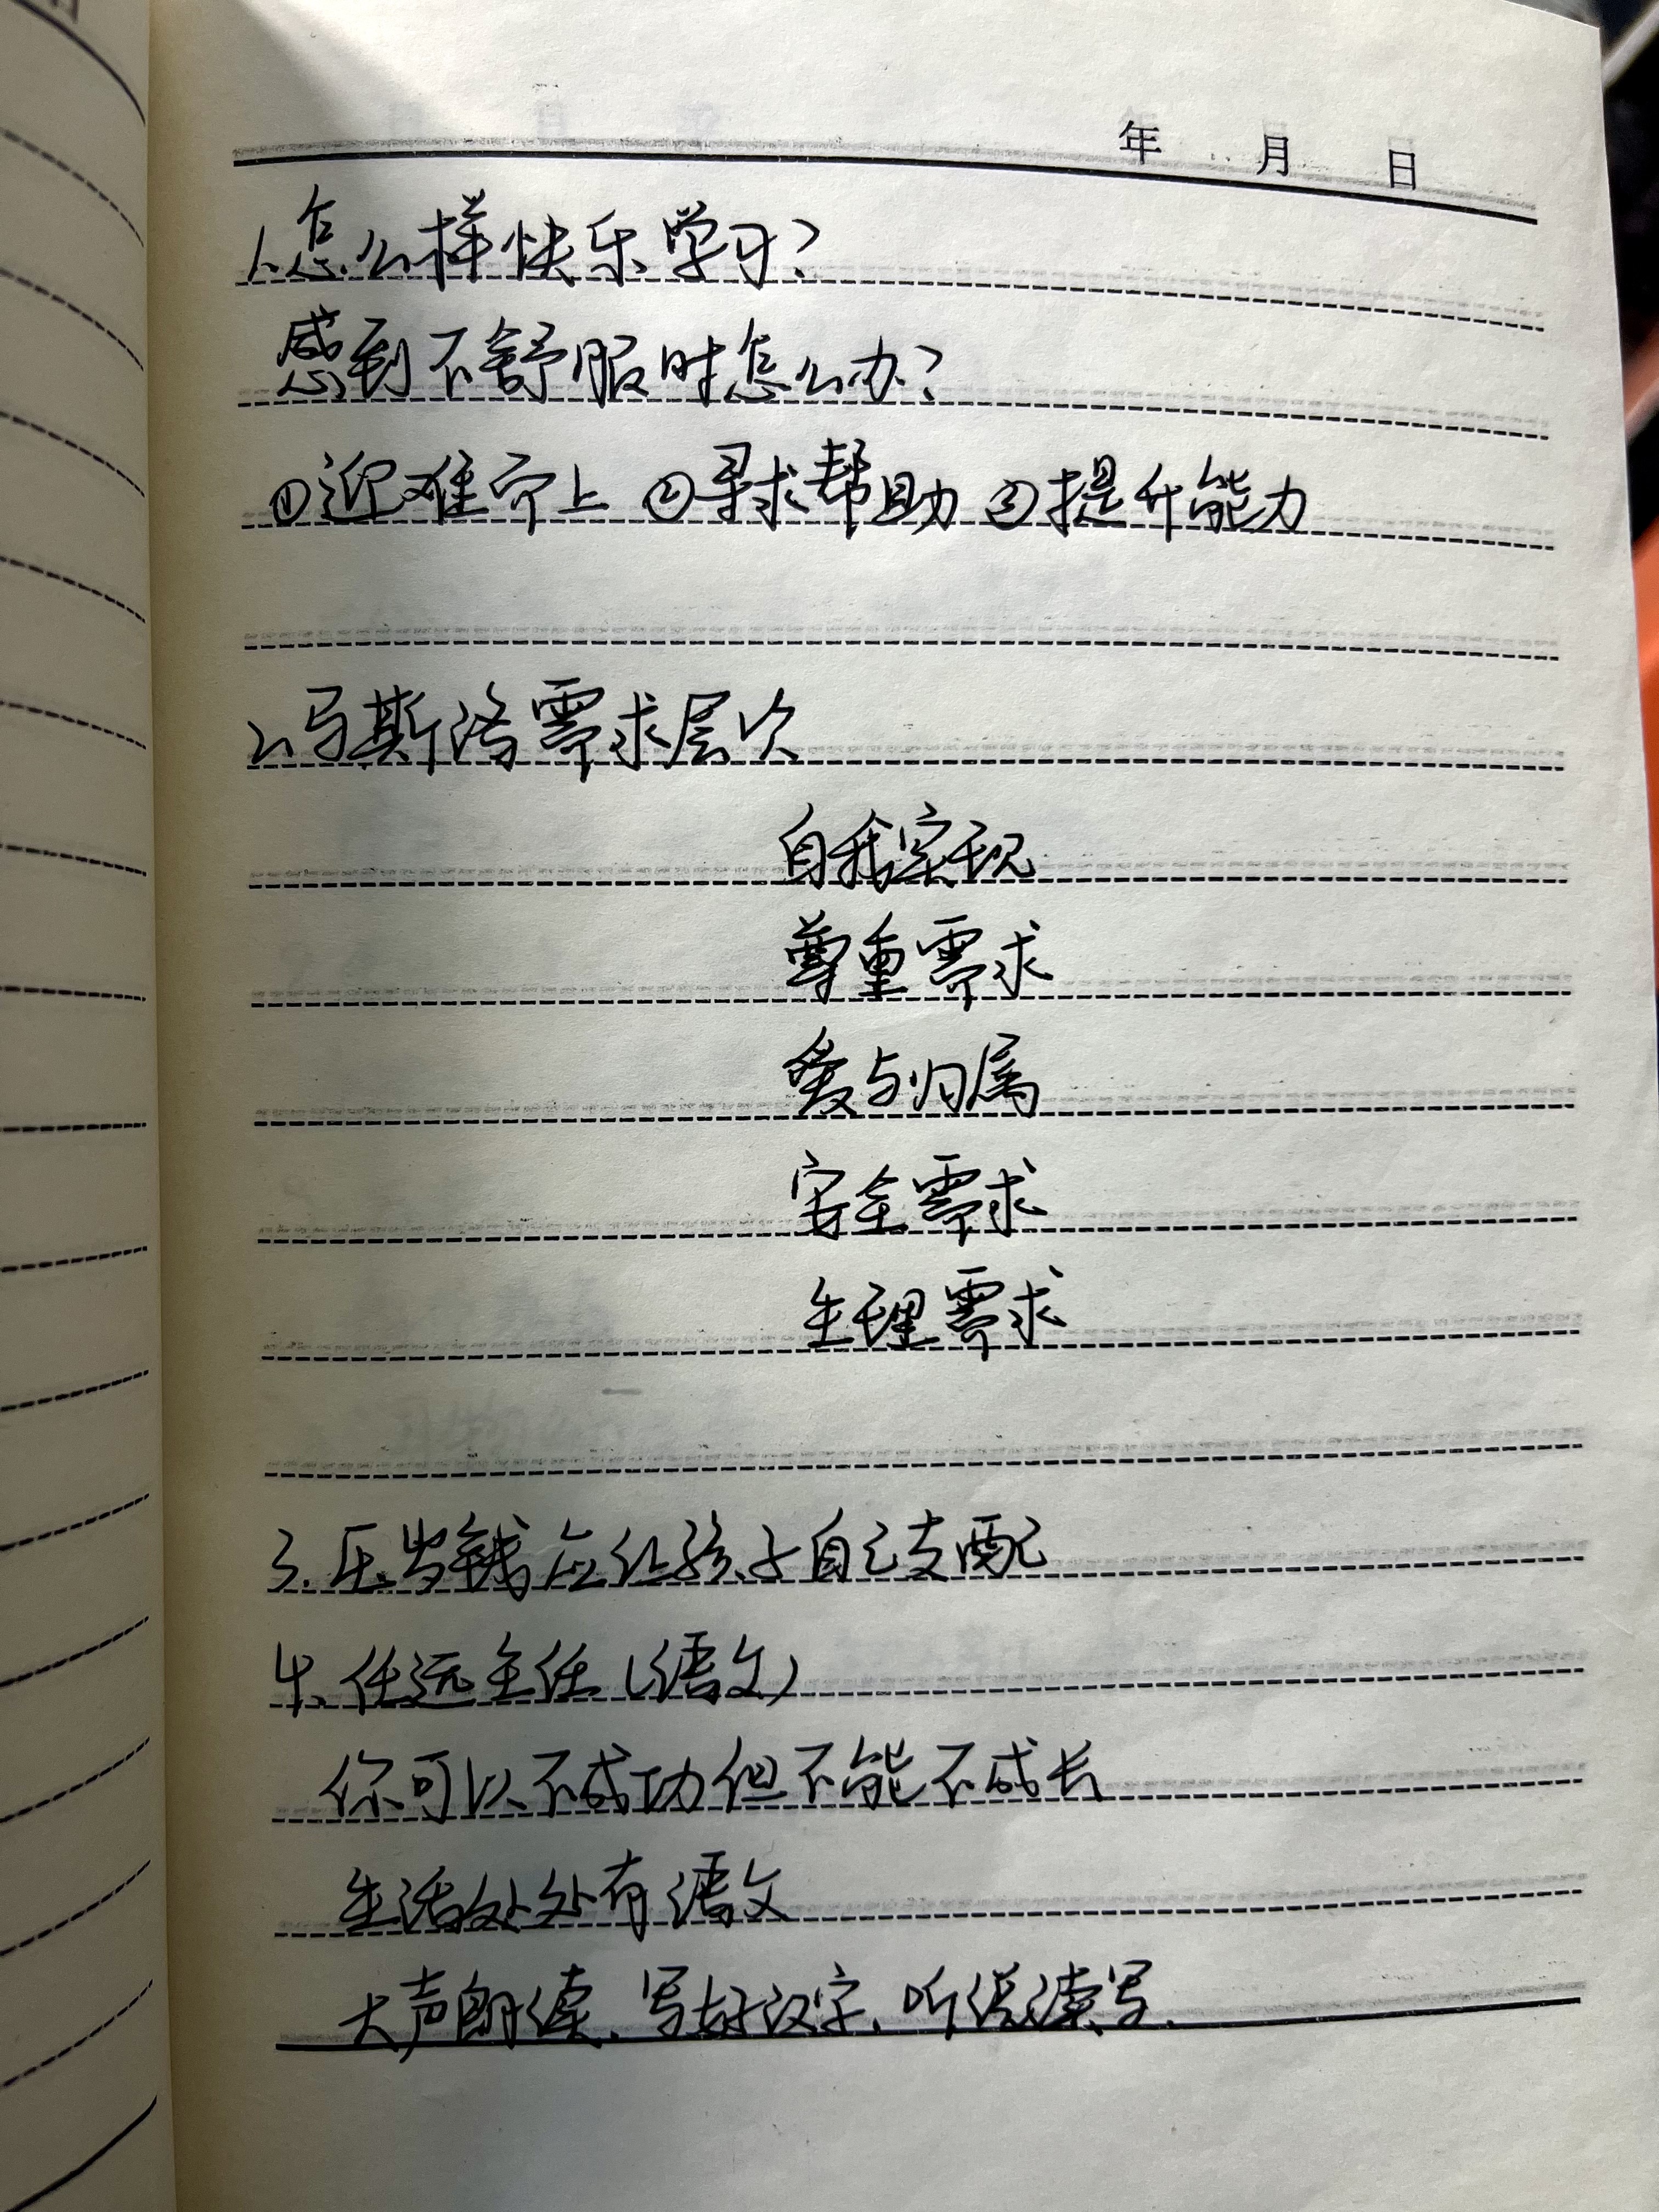 年 月 日
1.怎么样快乐学习?
感到不舒服时怎么办?
①迎难而上 ②寻求帮助 ③提升能力
2.马斯洛需求层次
自我实现
尊重需求
爱与归属
安全需求
生理需求
3.压岁钱应让孩子自己支配
4.任远主任(语文)
你可以不成功但不能不成长
生活处处有语文
大声朗读、写好汉字、听说读写.